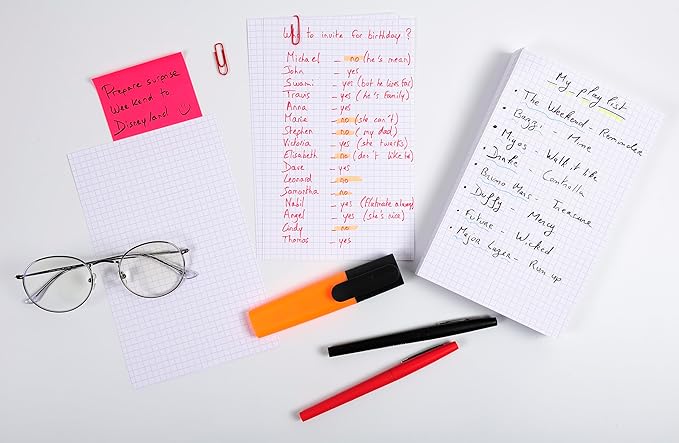 Prepare surprise
Weekend to
Disneyland
Who to invite for birthday ?
Michael – no (he's mean)
John – yes
Swami – yes (but he lives far)
Travis – yes (he's family)
Anna – yes
Marie – no (she can't)
Stephen – no (my dad)
Victoria – yes (she twerks)
Elisabeth – no (don't like her)
Dave – yes
Leonard – no
Samantha – no
Nabil – yes (flatmate always)
Angel – yes (she's nice)
Cindy – no
Thomas – yes
My playlist
• The Weekend - Reminder
• Bazzi - Mine
• Myos - Walk it like
• Drake - Controlla
• Bruno Mars - Treasure
• Duffy - Mercy
• Future - Wicked
• Major Lazer - Run up